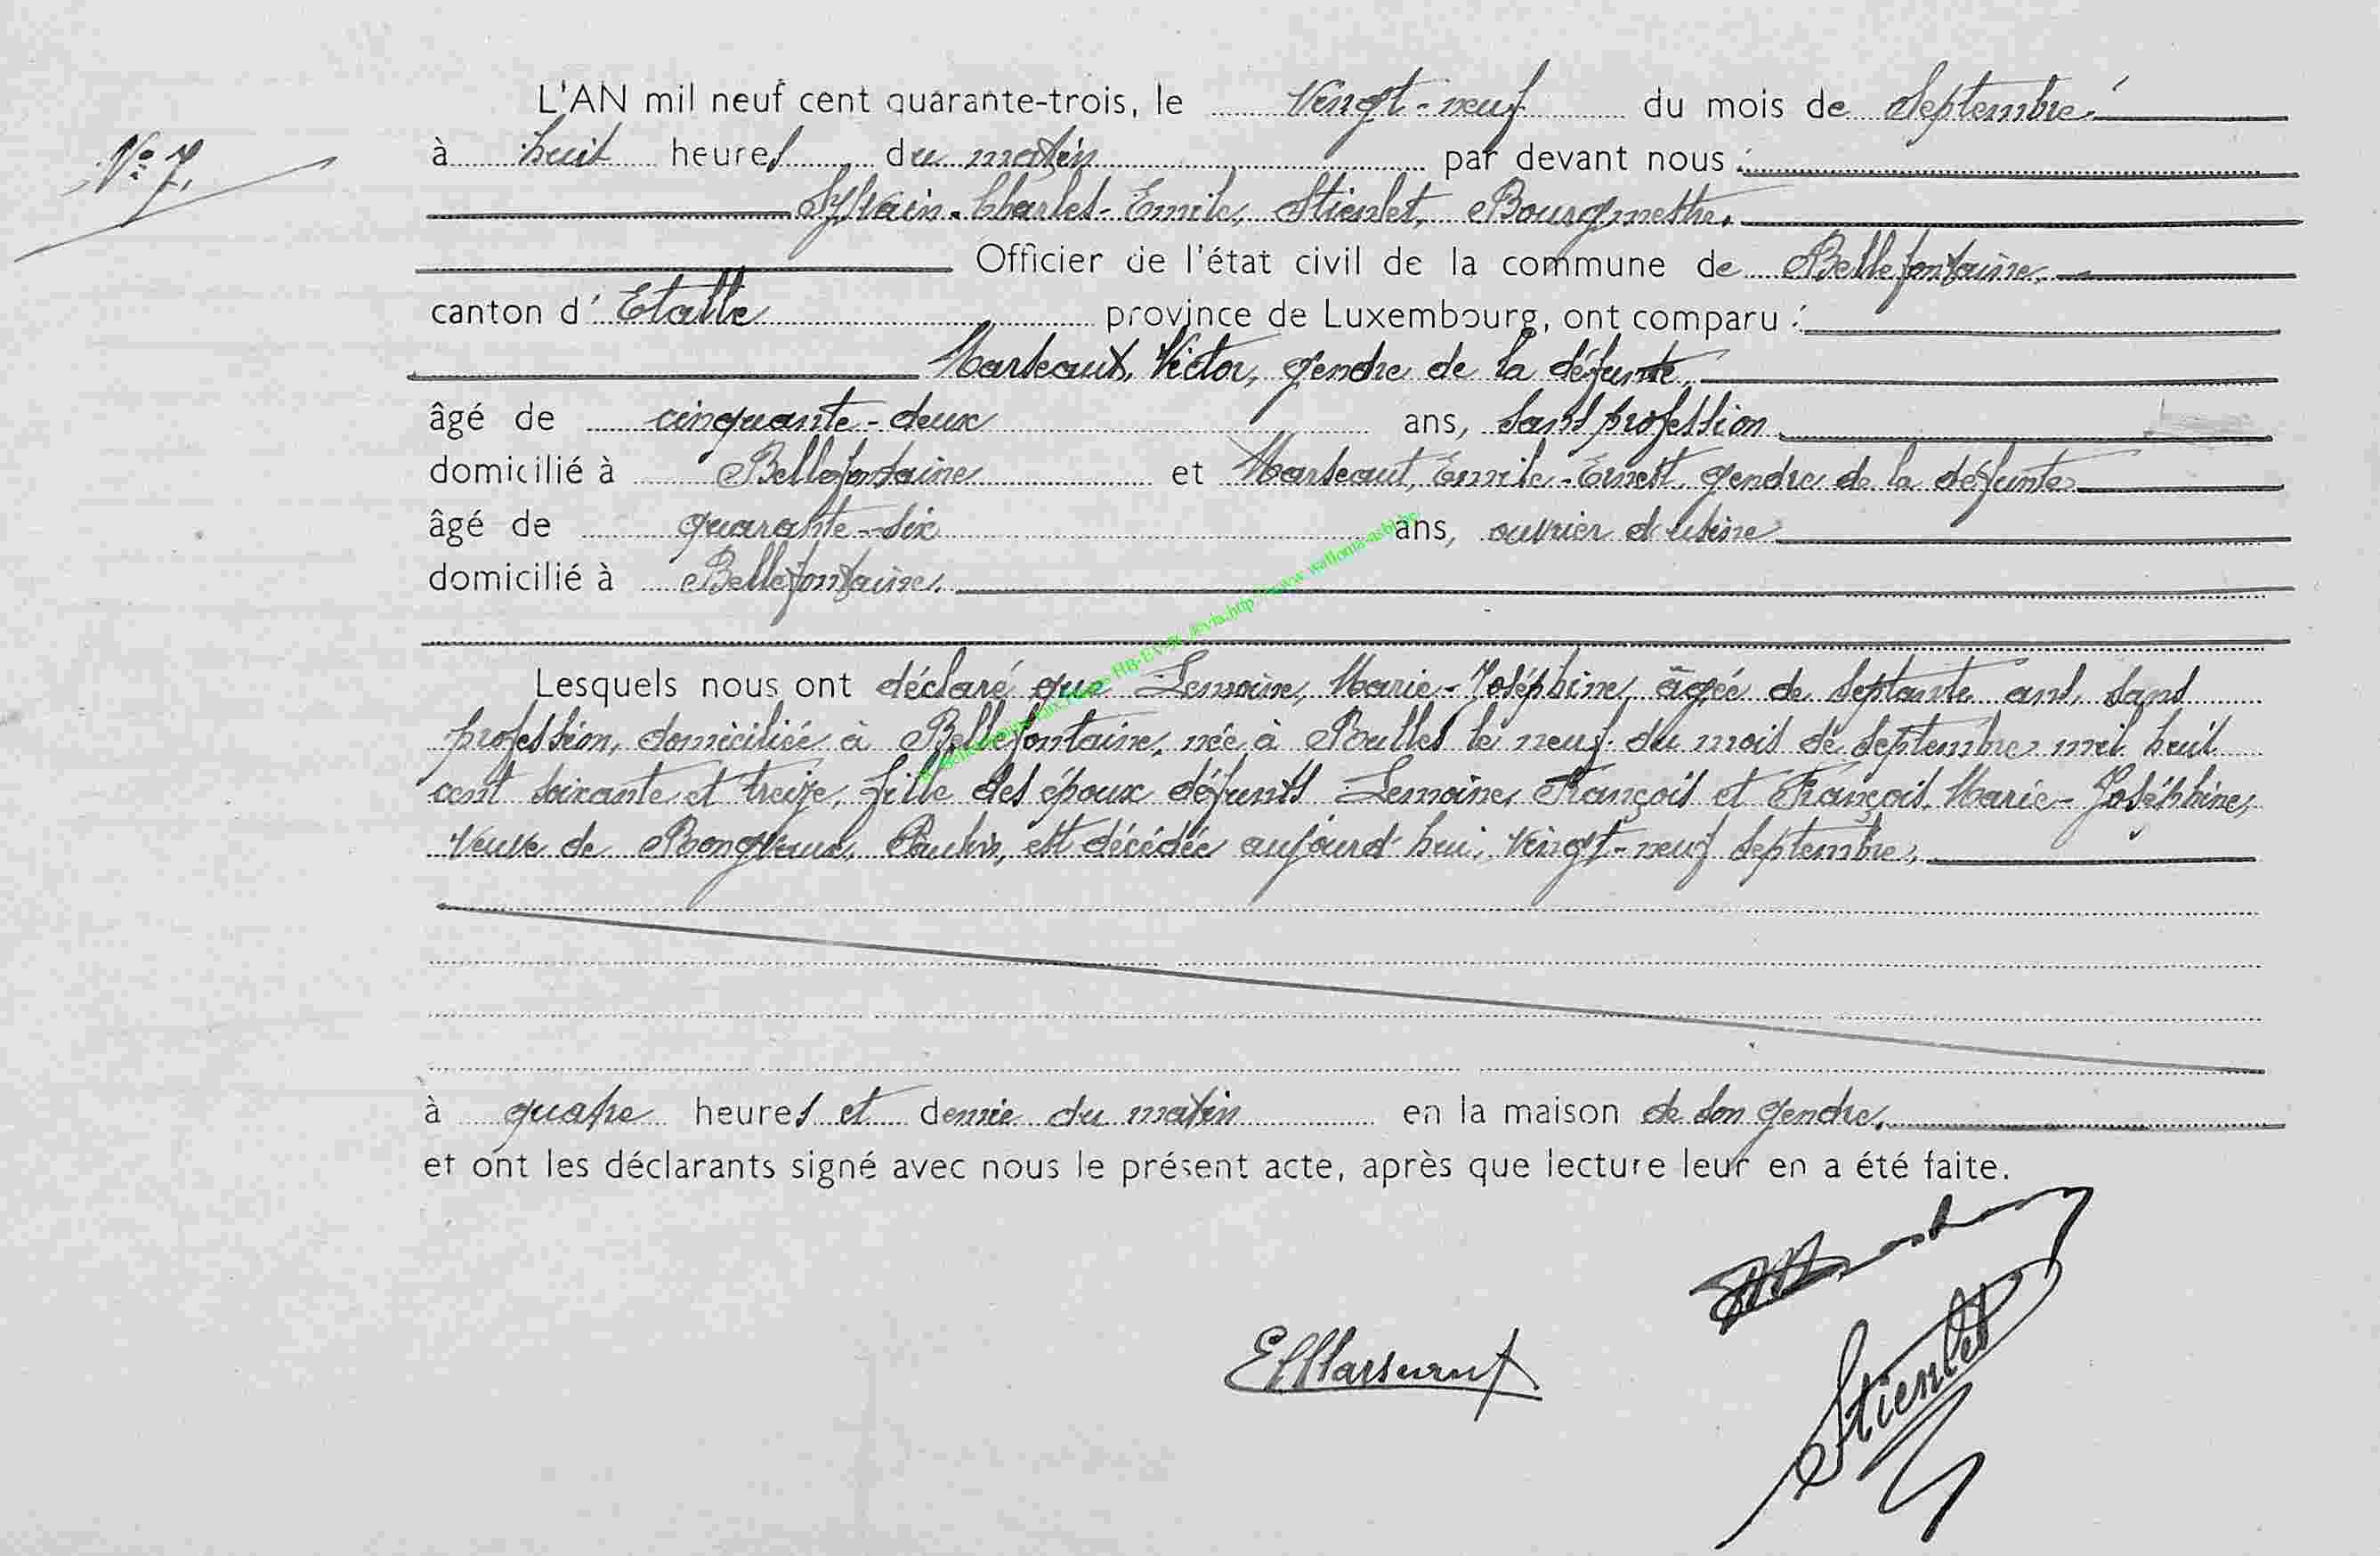 L'AN mil neuf cent quarante-trois, le Vingt-neuf du mois de Septembre.
N° 7.
à huit heures du matin par devant nous :
Sylvain-Charles-Emile, Stienlet, Bourgmestre.
Officier de l'état civil de la commune de Bellefontaine
canton d' Etalle province de Luxembourg, ont comparu :
Marseaut, Victor, gendre de la défunte,
âgé de cinquante-deux ans, sans profession
domicilié à Bellefontaine et Marseaut, Emile-Ernest, gendre de la défunte
âgé de quarante-six ans, ouvrier d'usine
domicilié à Bellefontaine.
Lesquels nous ont déclaré que Lemoine, Marie-Joséphine, âgée de septante ans, sans
profession, domiciliée à Bellefontaine, née à Bulles le neuf du mois de septembre mil huit
cent soixante et treize, fille des époux défunts Lemoine, François et François, Marie-Joséphine,
veuve de Rongveaux, Paulin, est décédée aujourd'hui, vingt-neuf septembre,
à quatre heures et demie du matin en la maison de son gendre.
et ont les déclarants signé avec nous le présent acte, après que lecture leur en a été faite.
EMarseaut
Stienlet